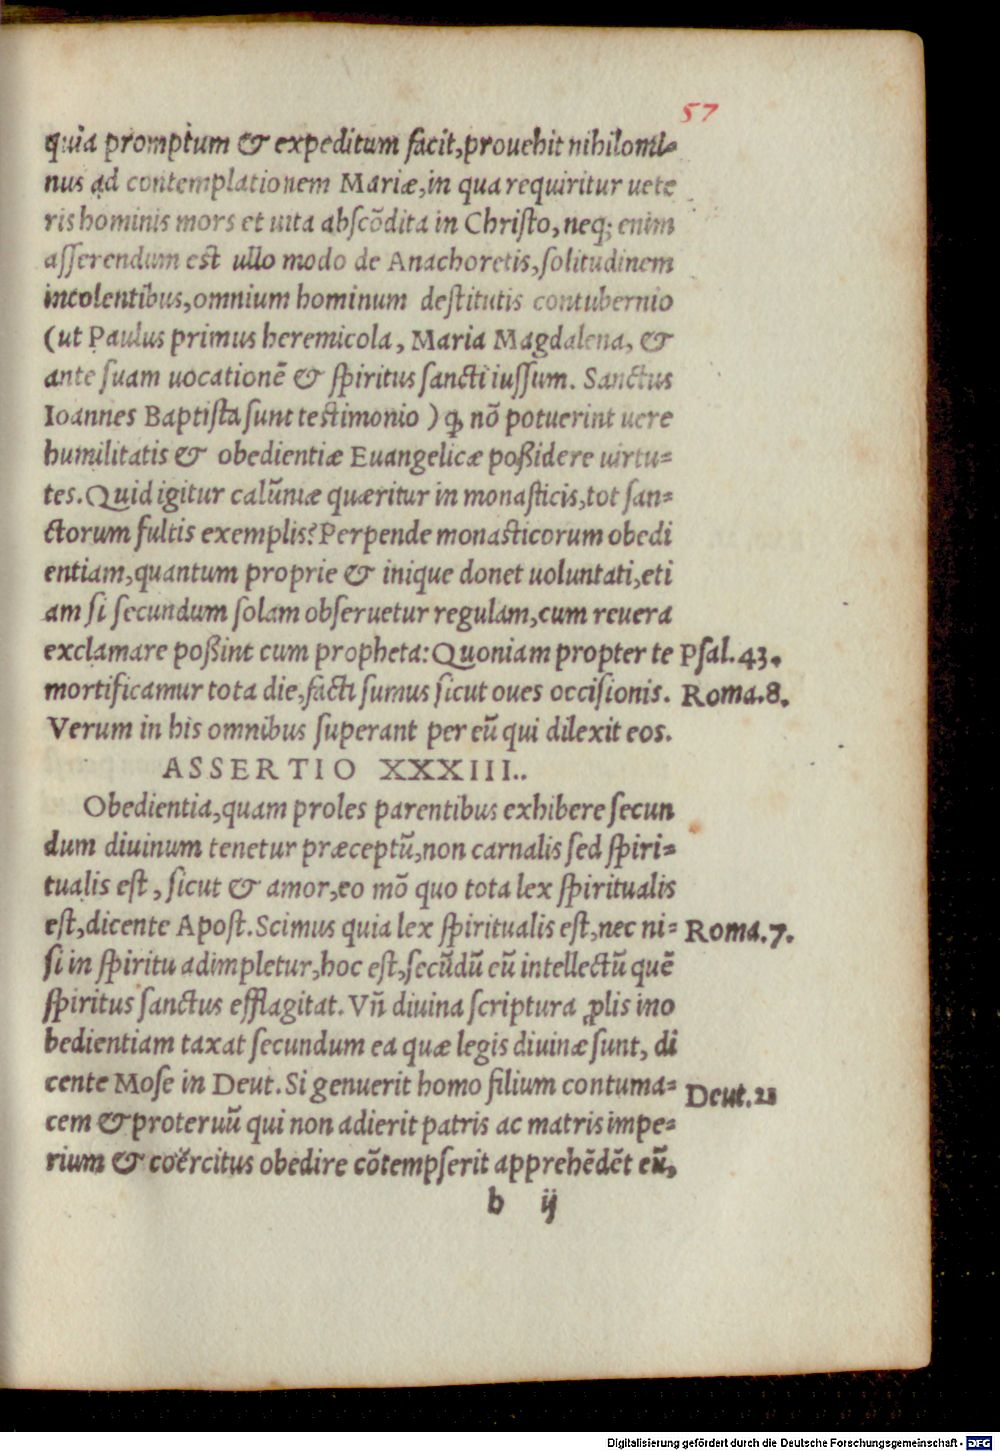 57
quia promptum & expeditum facit, prouehit nihilomi=
nus ad contemplationem Mariæ, in qua requiritur uete
ris hominis mors et uita abscõdita in Christo, neq; enim
asserendum est ullo modo de Anachoretis, solitudinem
incolentibus, omnium hominum destitutis contubernio
(ut Paulus primus heremicola, Maria Magdalena, &
ante suam uocationẽ & spiritus sancti iussum. Sanctus
Ioannes Baptista sunt testimonio ) ꝙ nõ potuerint uere
humilitatis & obedientiæ Euangelicæ poßidere uirtu=
tes. Quid igitur calũniæ quæritur in monasticis, tot san=
ctorum fultis exemplis? Perpende monasticorum obedi
entiam, quantum proprie & inique donet uoluntati, eti
am si secundum solam obseruetur regulam, cum reuera
exclamare poßint cum propheta: Quoniam propter te Psal.43.
mortificamur tota die, facti sumus sicut oues occisionis. Roma.8.
Verum in his omnibus superant per eũ qui dilexit eos.
ASSERTIO XXXIII..
Obedientia, quam proles parentibus exhibere secun
dum diuinum tenetur præceptũ, non carnalis sed spiri=
tualis est, sicut & amor, eo mõ quo tota lex spiritualis
est, dicente Apost. Scimus quia lex spiritualis est, nec ni= Roma.7.
si in spiritu adimpletur, hoc est, secũdũ eũ intellectũ quẽ
spiritus sanctus efflagitat. Vñ diuina scriptura ꝓlis ino
bedientiam taxat secundum ea quæ legis diuinæ sunt, di
cente Mose in Deut. Si genuerit homo filium contuma= Deut.21
cem & proteruũ qui non adierit patris ac matris impe=
rium & coërcitus obedire cõtempserit apprehẽdẽt eũ,
b ij
Digitalisierung gefördert durch die Deutsche Forschungsgemeinschaft - DFG